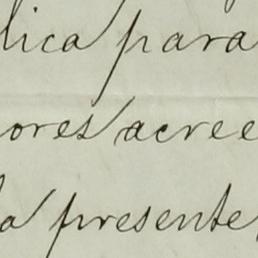 lica para
ores acree
la presente,